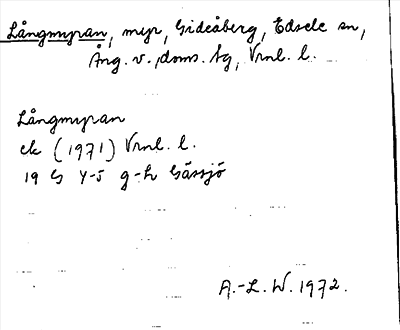 Långmyran, myr, Gideåberg, Edsele sn,
Ång. v. doms. tg, Vrnl. l.
Långmyran
ek (1971) Vrnl. l.
19 G 4-5 g-h Gåssjö
A.-L. W. 1972.